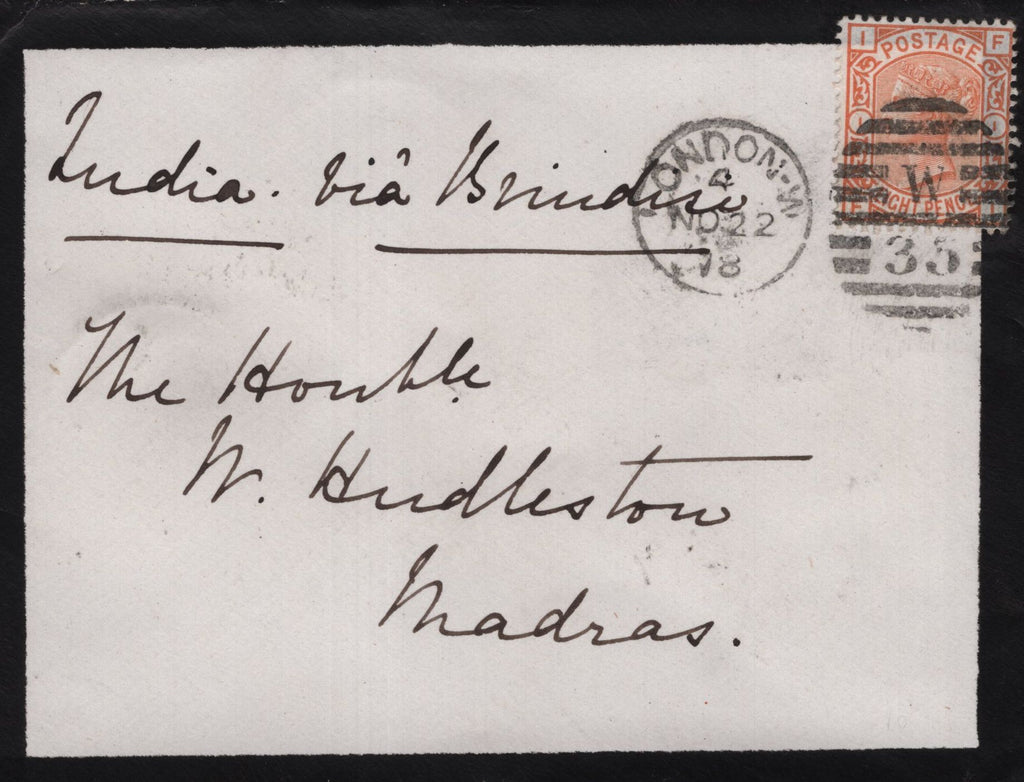 I POSTAGE F
I I
F EIGHT PENCE I
W
35
LONDON-W
4
NO 22
78
India. viâ Brindisi
The Honble.
W. Hudleston
Madras.